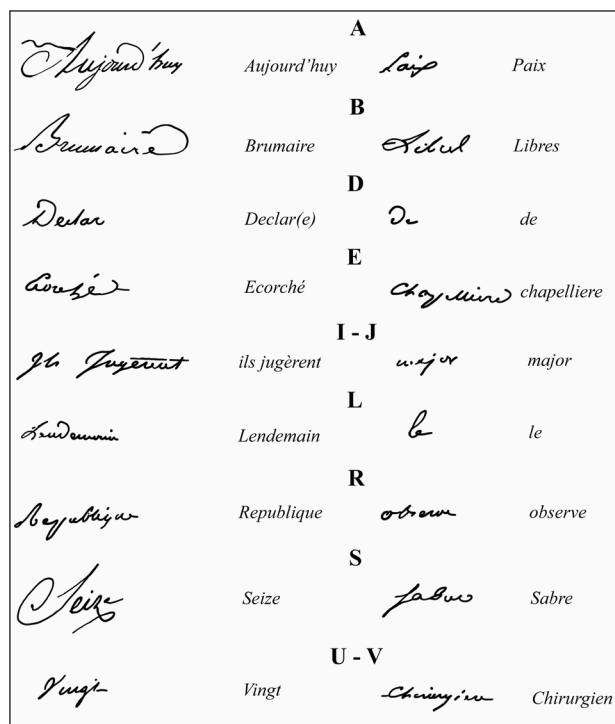 A
Aujourd'huy Aujourd'huy Paix Paix
B
Brumaire Brumaire Libres Libres
D
Declar Declar(e) De de
E
Ecorché Ecorché chapelliere chapelliere
I - J
ils jugèrent ils jugèrent major major
L
Lendemain Lendemain le le
R
Republique Republique observe observe
S
Seize Seize Sabre Sabre
U - V
Vingt Vingt Chirurgien Chirurgien